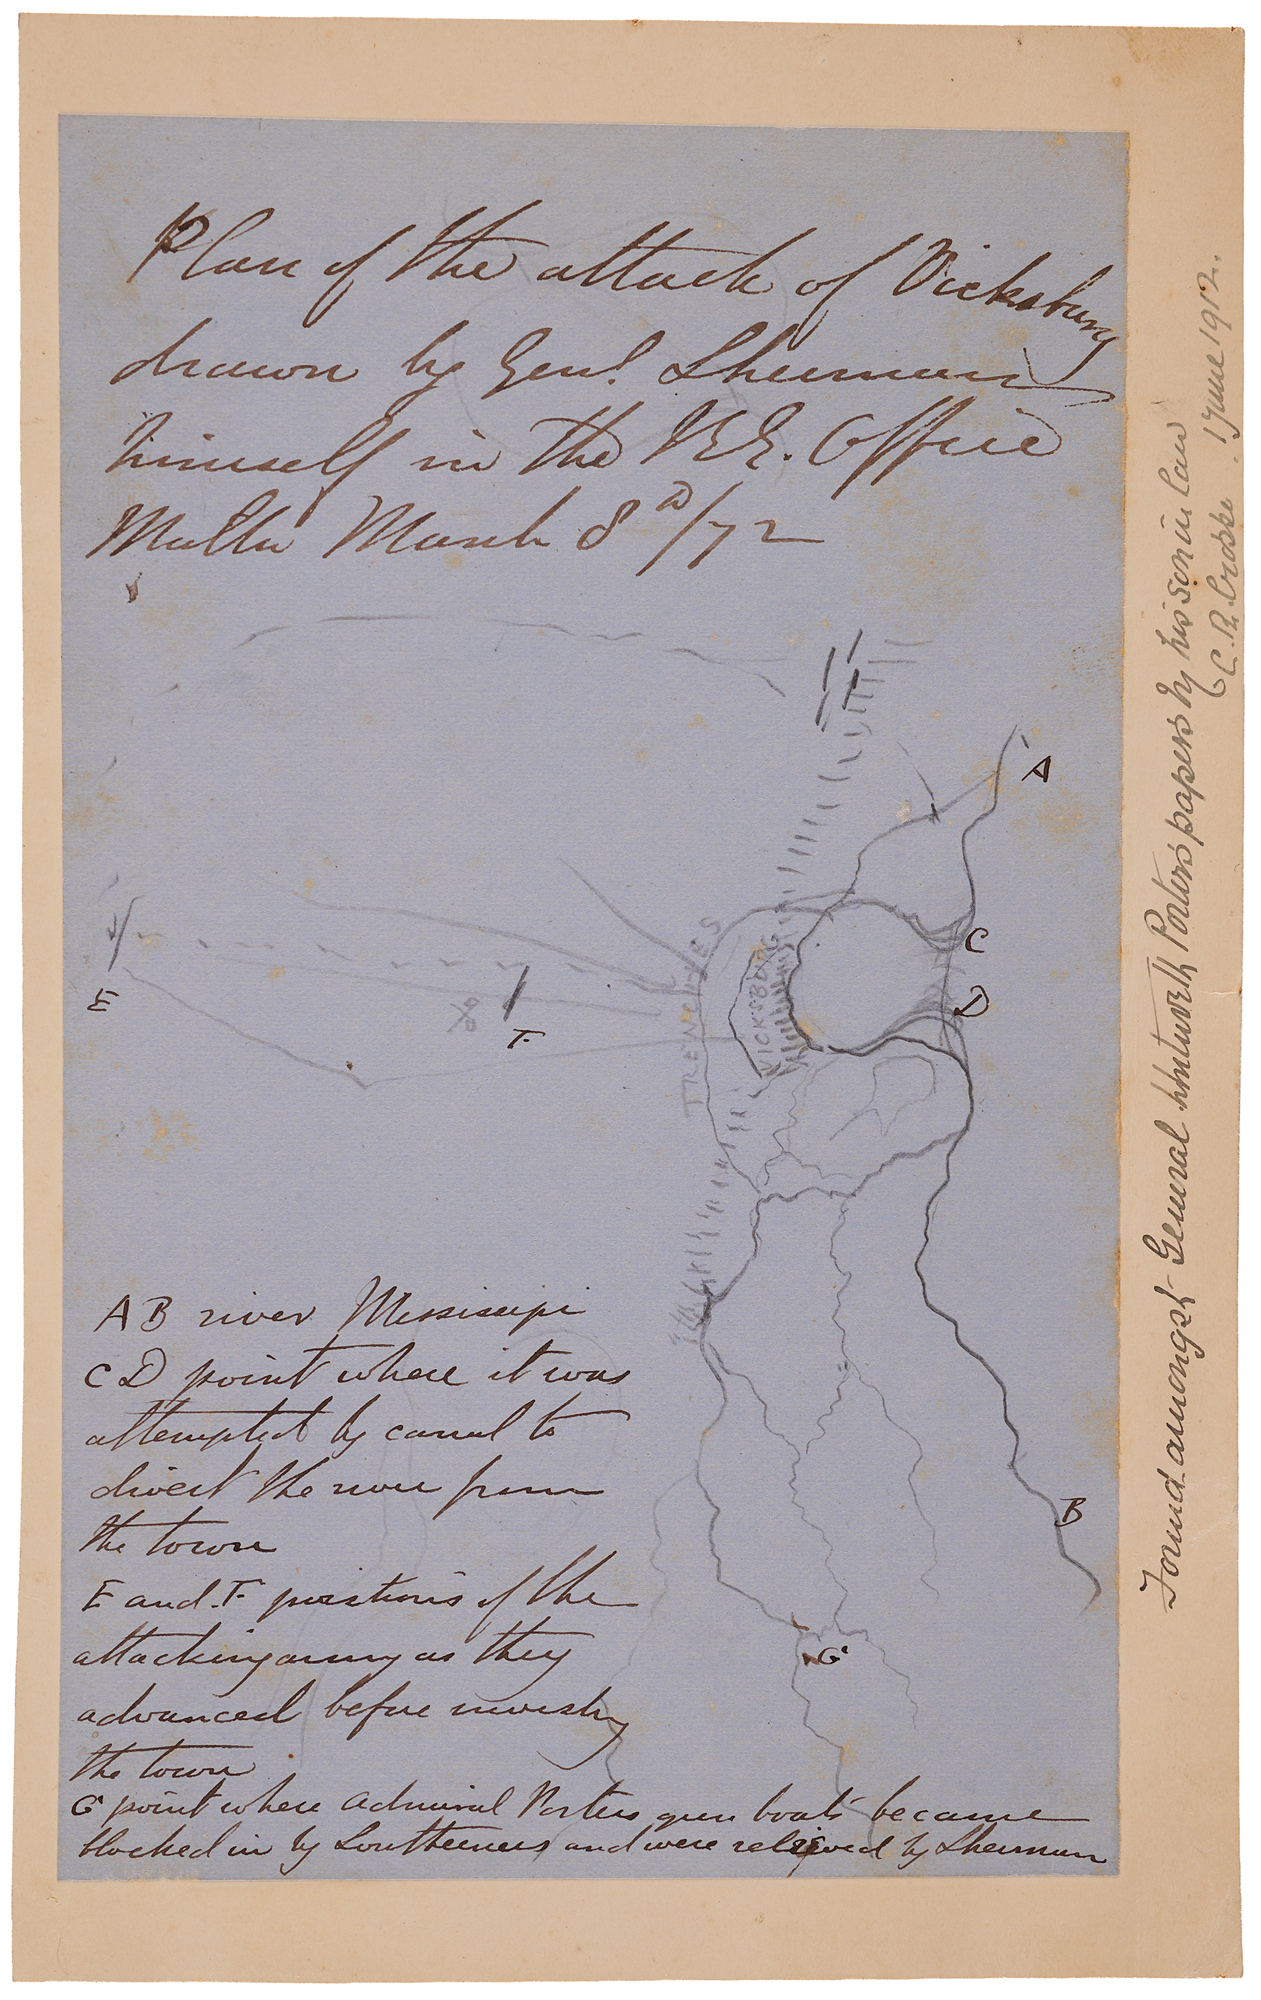 Plan of the attack of Vicksburg
drawn by Genl. Sherman
himself in the R.E. Office
Malta March 8th/72
A
C
D
TRENCHES
VICKSBURG
E
F.
B
G
A B river Missisipi
C D point where it was
attempted by canal to
divert the river from
the town
E and F positions of the
attacking army as they
advanced before investing
the town
G point where Admiral Porters gun boats became
blocked in by Southerners and were relieved by Sherman
Found amongst General Whitworth Porters papers by his son in law
C.R. Crosse. June 1912.